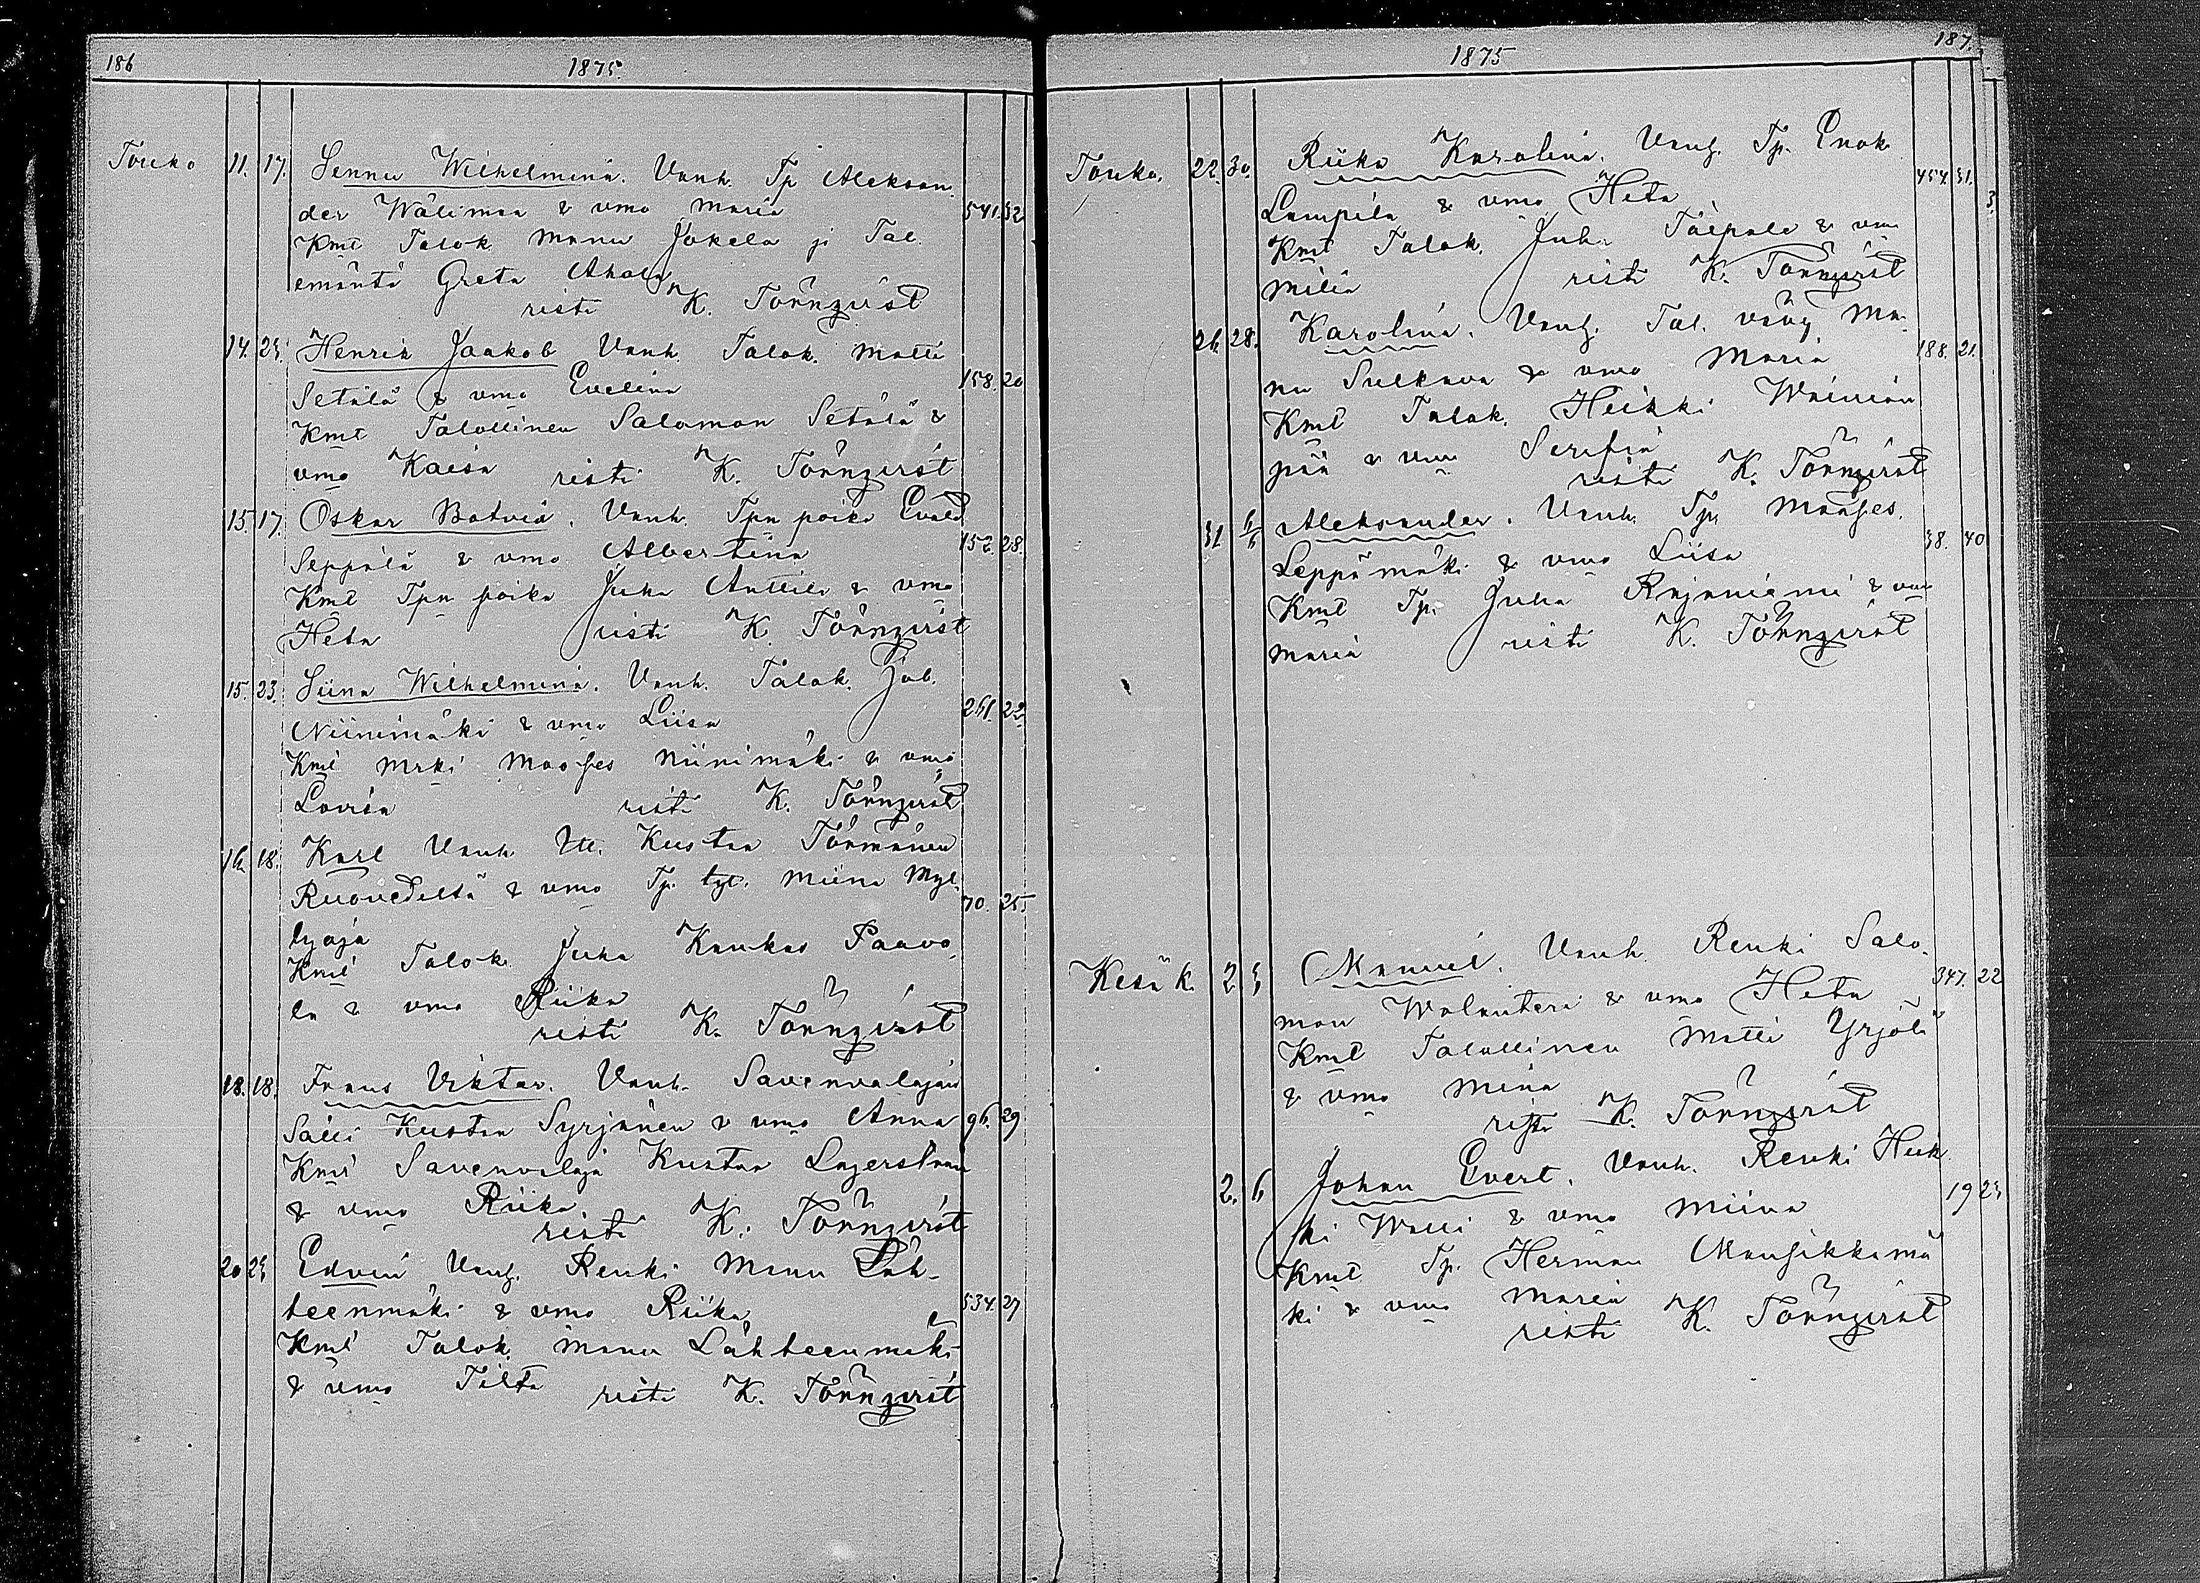 186 1875.
Touko 11. 17. Sennu Wilhelmina. Vanh. Tp Aleksan
der Wälimaa & vmo Maria 541. 32
Kmt Talok. Manu Jokela ja Tal.
emäntä Greta Ahola
risti K. Törnqvist
14. 23. Henrik Jaakob Vanh. Talok. Matti
Setälä & vmo Evelina 158 20
Kmt Talollinen Salomon Setälä &
vmo Kaisa risti K. Törnqvist
15. 17. Oskar Vanh. Tpn poika Evald
Seppälä & vmo Albertina 152. 28.
Kmt Tpn poika Juha Anttila & vmo
Heta risti K. Törnqvist
15. 23. Siina Wilhelmina. Vanh. Talok. Job.
Niinimäki & vmo Liisa 261. 22
Kmt Mrki Mooses Niinimäki & vmo
Lovisa risti K. Törnqvist
16. 18. Karl Vanh. Kustaa Törmänen
Ruovedeltä & vmo Tp. tyt. Miina Myl-
lyoja 70. 25.
Kmt Talok. Juha Kaukas Paavo
la & vmo Riika
risti K. Törnqvist
18. 18. Frans Viktor. Vanh. Savenvalajan
Sälli Kustaa Syrjänen & vmo Anna 96. 29
Kmt Savenvalaja Kustaa Lagerstram
& vmo Riika
risti K. Törnqvist
20 23 Edvin Vanh. Renki Manu Läh-
teenmäki & vmo Riika 534. 27
Kmt Talok. Manu Lähteenmäki
& vmo Tilta risti K. Törnqvist
1875 187.
Touko. 22. 30. Riika Karolina. Vanh. Tp. Enok
Lampila & vmo Heta 454. 31. 3.
Kmt Talok. Juha Taipale & vmo
Milia risti K. Törnqvist
26. 28. Karolina. Vanh. Tal. vävy Ma-
nu Sulkava & vmo Maria 188. 21.
Kmt Talok. Heikki Wäinion
pää & vmo Serafia
risti K. Törnqvist
31 6/6 Aleksander. Vanh. Tp. Mooses
Leppämäki & vmo Liisa 38. 40
Kmt Tp. Juha Rajaniemi & vmo
Maria risti K. Törnqvist
Kesäk. 2. Manuel. Vanh. Renki Salo-
mon Walanteri & vmo Heta 347. 22
Kmt Talollinen Matti Yrjölä
& vmo Mina
risti K. Törnqvist
2. 6. Johan Evert. Vanh. Renki Heik
ki Walli & vmo Miina 19 23
Kmt Tp. Herman Mansikkamä
ki & vmo Maria
risti K. Törnqvist